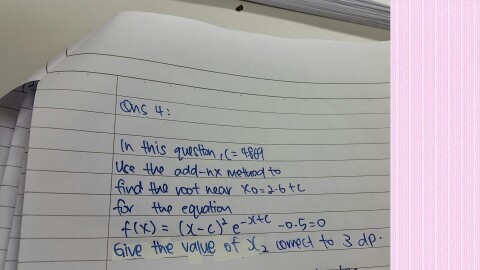 Qns 4:
In this question, C = 4869
Use the add-nx method to
find the root near x0=2.6+c
for the equation
f(x) = (x-c)² e^-x+c -0.5=0
Give the value of x₂ correct to 3 dp.